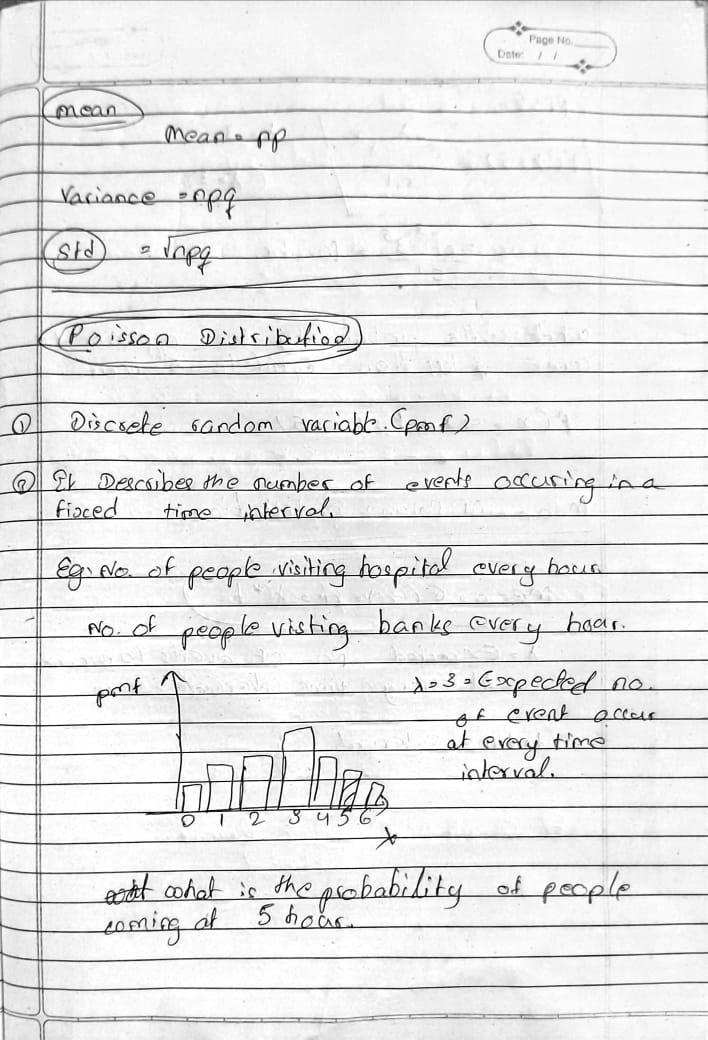 Page No.
Date: / /
mean
Mean = np
Variance = npq
Std = √npq
Poisson Distribution
① Discrete random variable. (pmf)
② It Describes the number of events occuring in a
fixed time interval.
Eg: No. of people visiting hospital every hour
No. of people visting banks every hour.
pmf
λ=3=Expected no.
of event occur
at every time
interval.
0 1 2 3 4 5 6
x
what is the probability of people
coming at 5 hour.